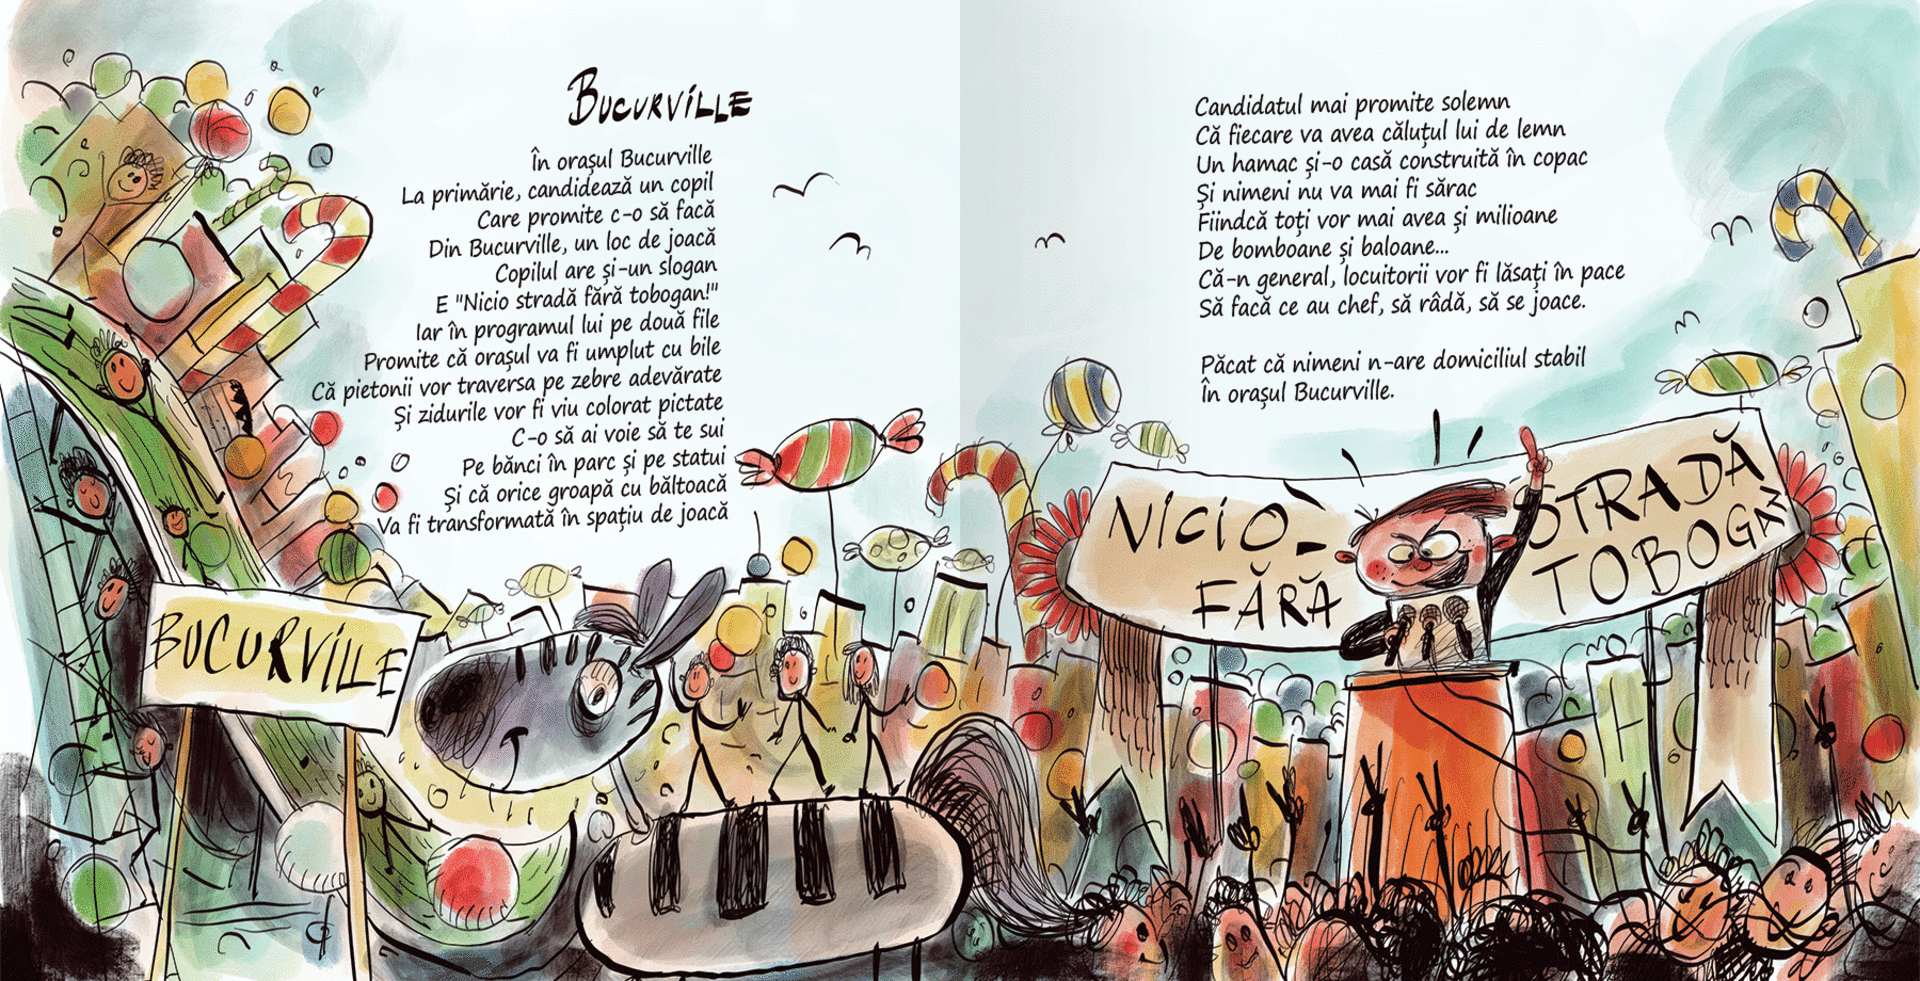 BUCURVILLE
În orașul Bucurville
La primărie, candidează un copil
Care promite c-o să facă
Din Bucurville, un loc de joacă
Copilul are și-un slogan
E "Nicio stradă fără tobogan!"
Iar în programul lui pe două file
Promite că orașul va fi umplut cu bile
Că pietonii vor traversa pe zebre adevărate
Și zidurile vor fi viu colorat pictate
C-o să ai voie să te sui
Pe bănci în parc și pe statui
Și că orice groapă cu băltoacă
Va fi transformată în spațiu de joacă
BUCURVILLE
Candidatul mai promite solemn
Că fiecare va avea căluțul lui de lemn
Un hamac și-o casă construită în copac
Și nimeni nu va mai fi sărac
Fiindcă toți vor mai avea și milioane
De bomboane și baloane...
Că-n general, locuitorii vor fi lăsați în pace
Să facă ce au chef, să râdă, să se joace.
Păcat că nimeni n-are domiciliul stabil
În orașul Bucurville.
NICIO STRADĂ
FĂRĂ TOBOGAN